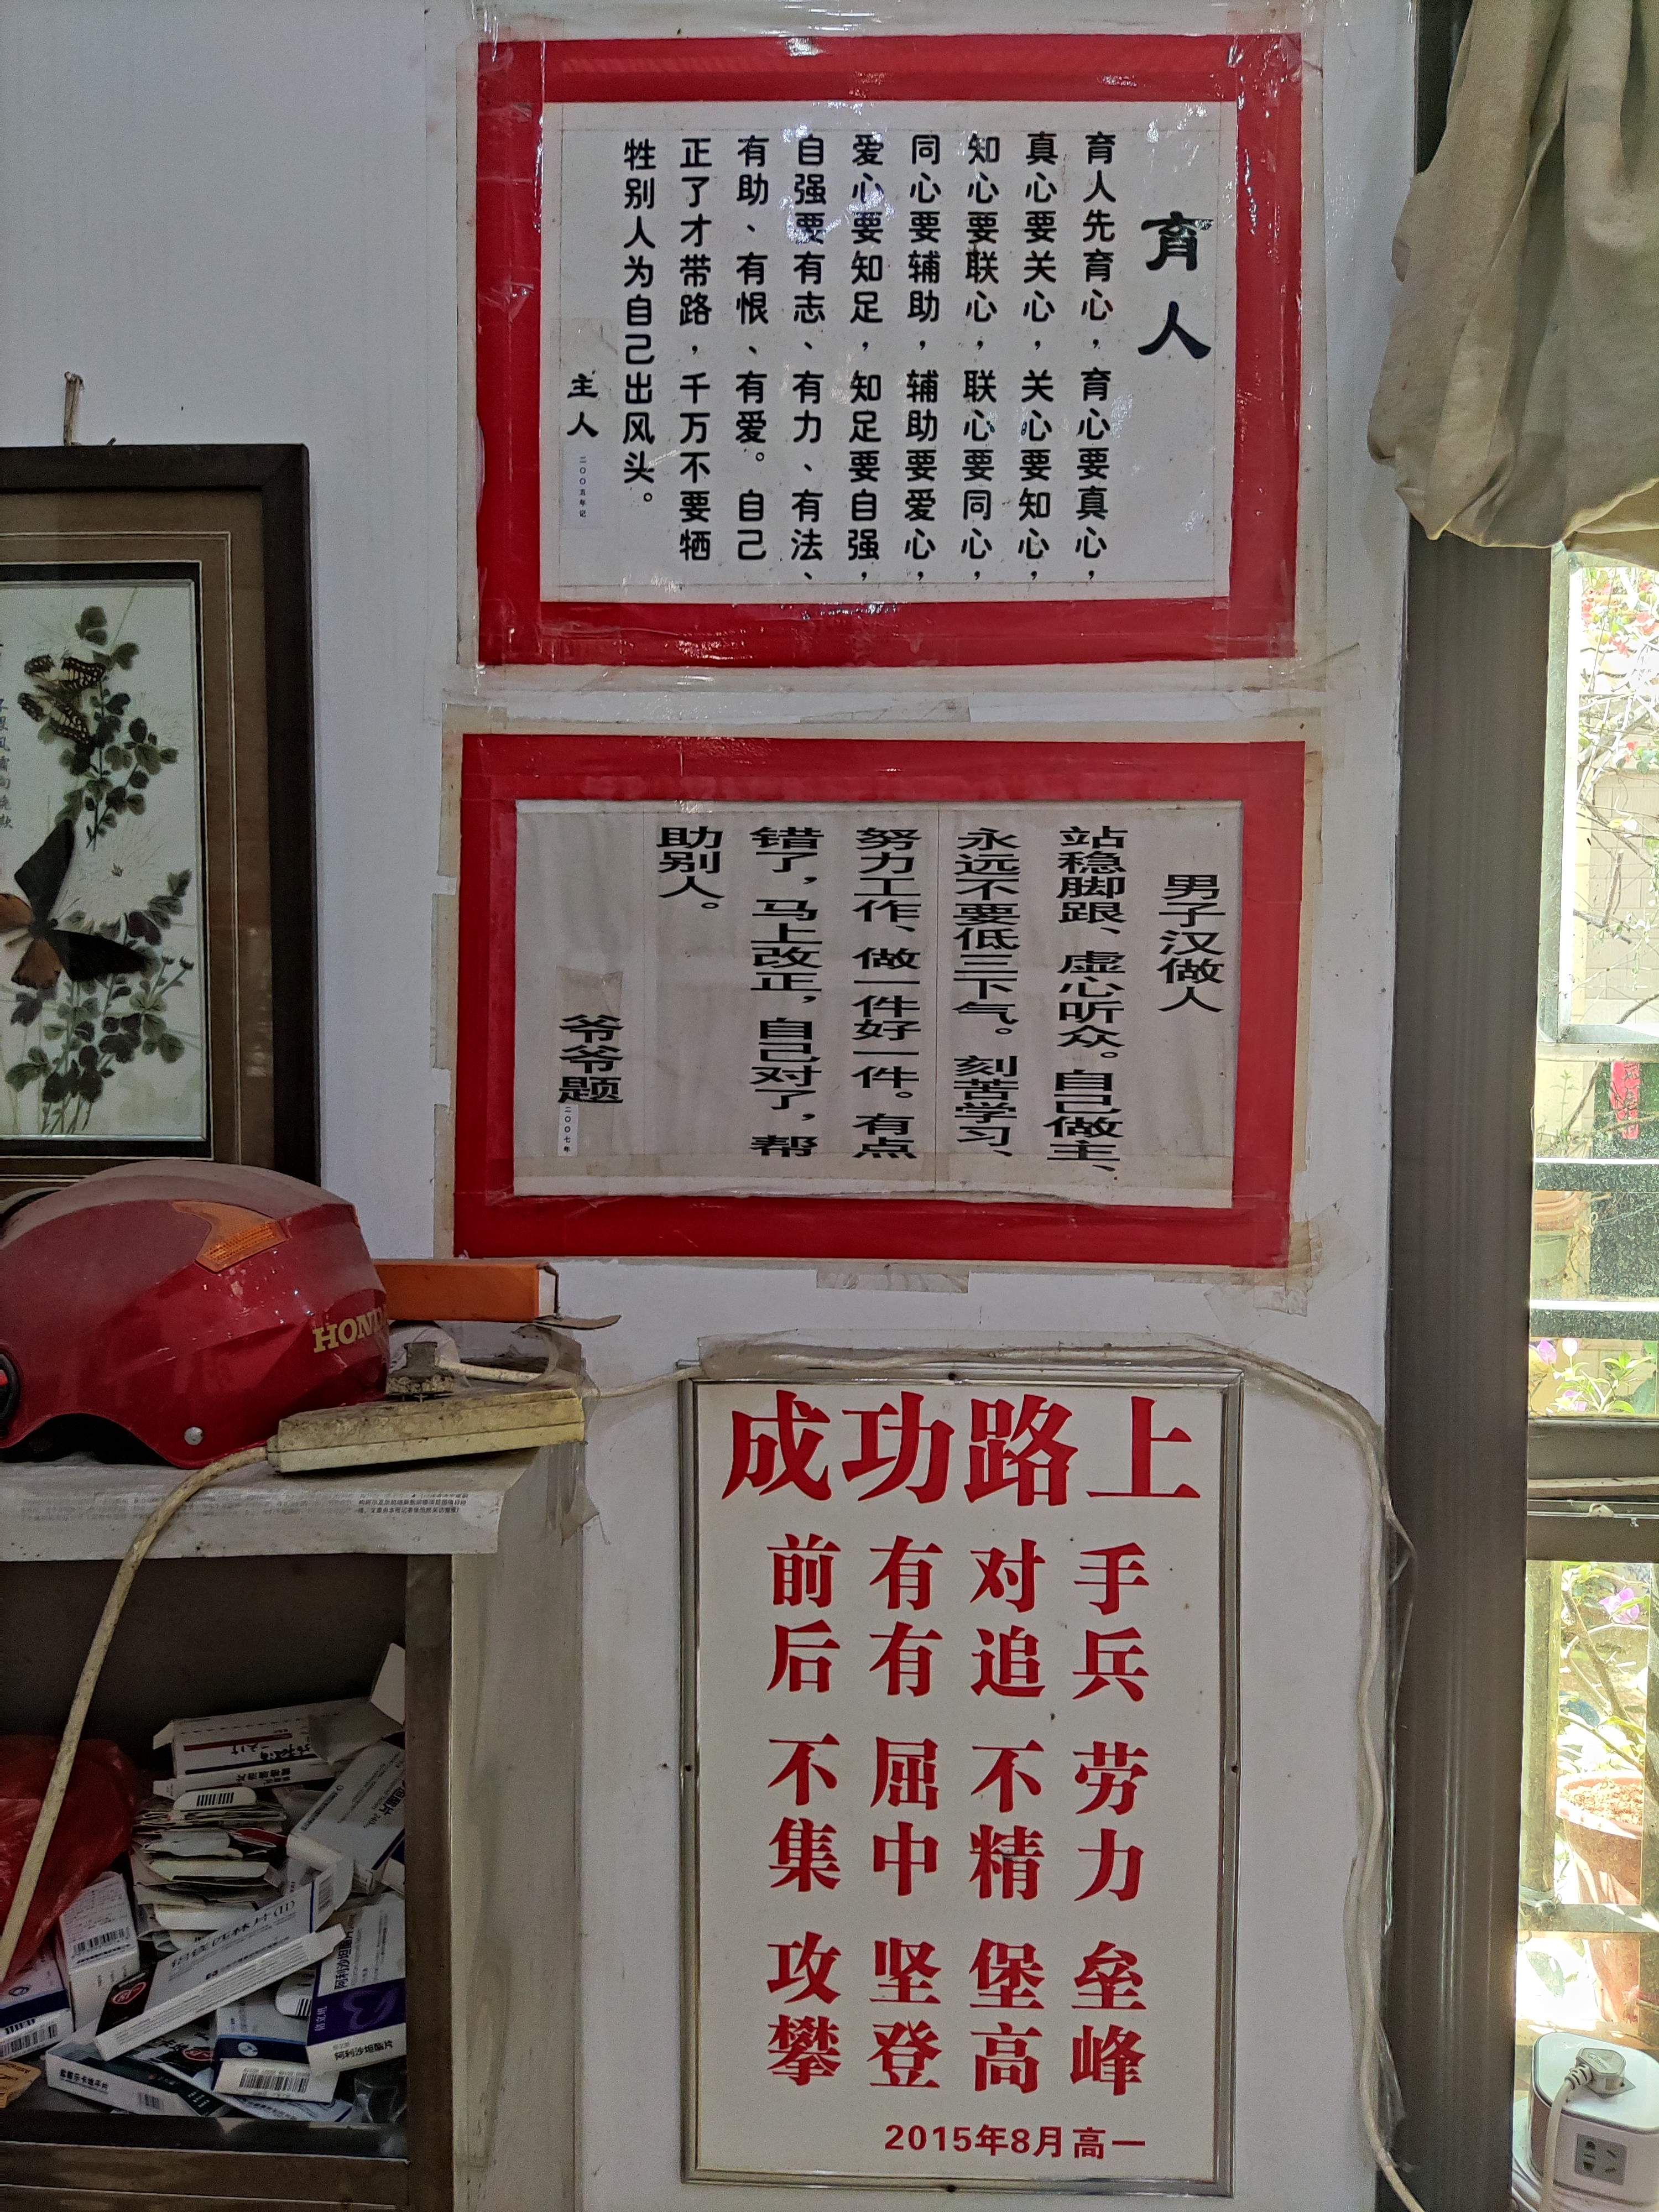 育人
育人先育心，育心要真心，
真心要关心，关心要知心，
知心要联心，联心要同心，
同心要辅助，辅助要爱心，
爱心要知足，知足要自强，
自强要有志、有力、有法、
有助、有恨、有爱。自己
正了才带路，千万不要牺
牲别人为自己出风头。
主人
二〇〇五年记
男子汉做人
站稳脚跟、虚心听众。自己做主、
永远不要低三下气。刻苦学习、
努力工作、做一件好一件。有点
错了，马上改正，自己对了，帮
助别人。
爷爷题
二〇〇七年
HOND
成功路上
前有对手
后有追兵
不屈不劳
集中精力
攻坚堡垒
攀登高峰
2015年8月高一